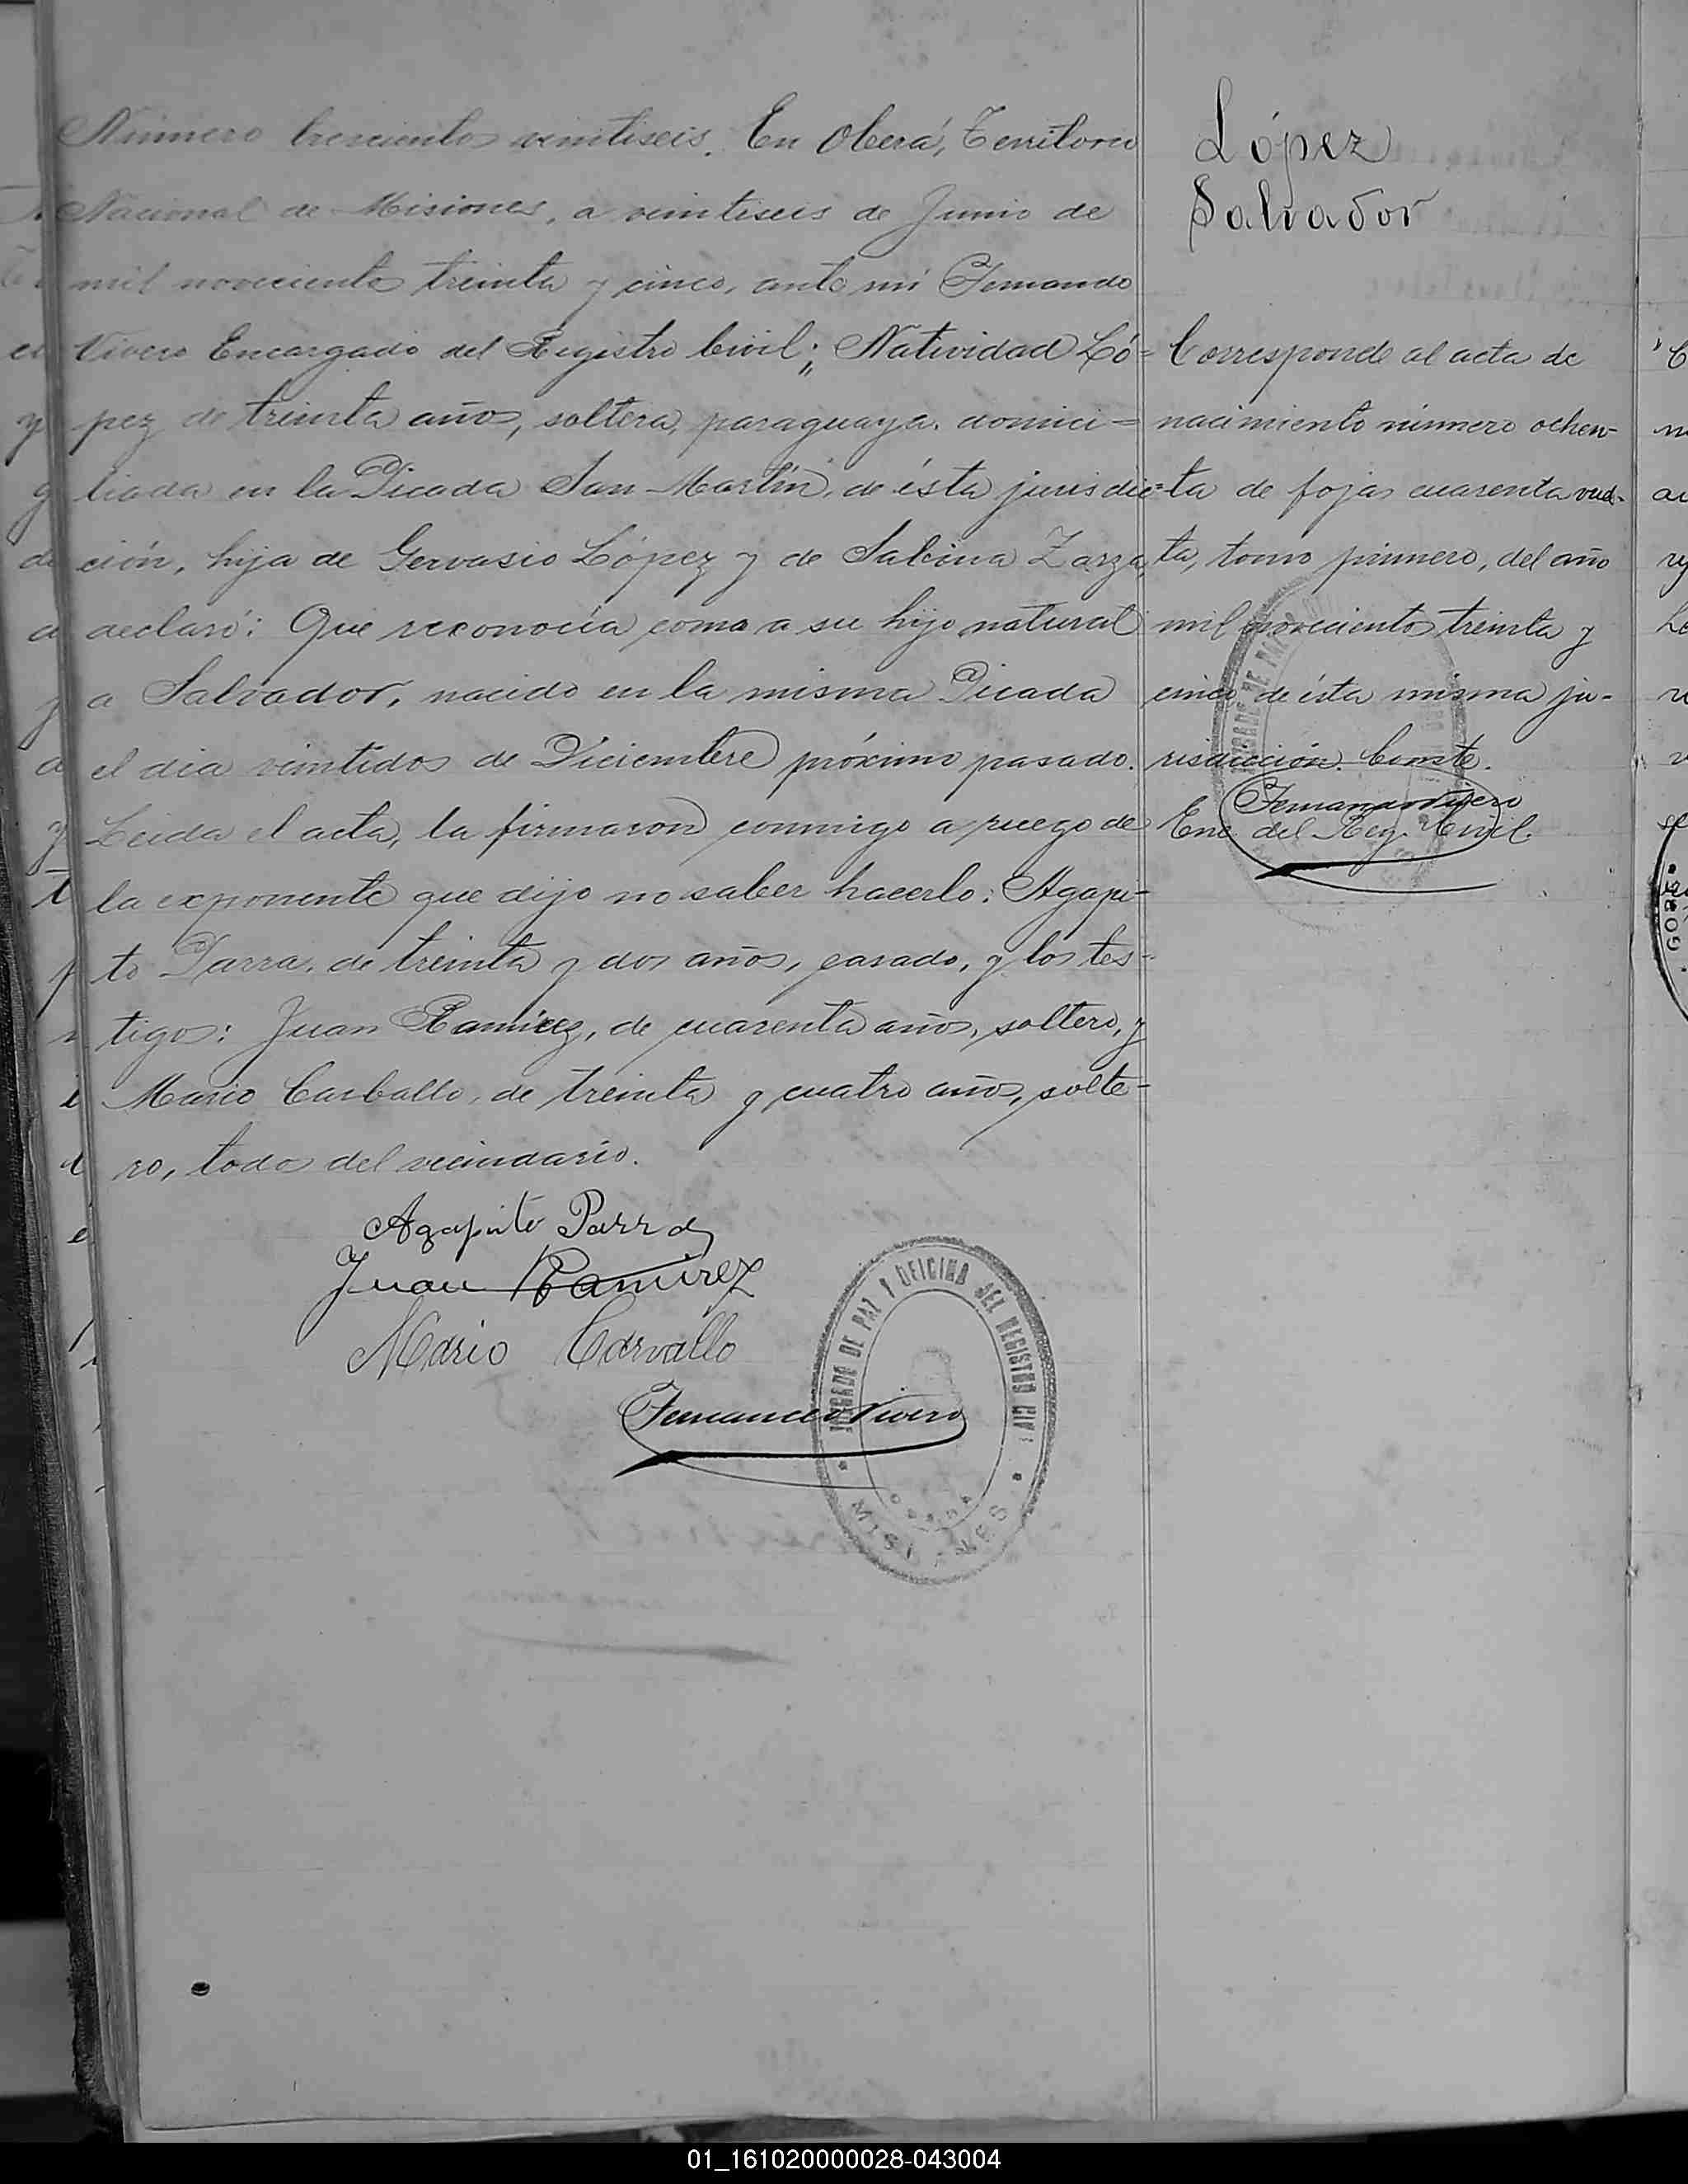 Número trescientos veintiseis. En Oberá, Territorio
Nacional de Misiones, a veintiseis de Junio de
mil novecientos treinta y cinco, ante mí Fernando
Vivero Encargado del Registro Civil; Natividad Ló=
pez de treinta años, soltera, paraguaya, domici=
liada en la Picada San Martín, de ésta jurisdic=
ción, hija de Gervasio López y de Sabina Zarza,
declaró: Que reconocía como a su hijo natural
a Salvador, nacido en la misma Picada
el día veintidos de Diciembre próximo pasado.
Leida el acta, la firmaron conmigo a ruego de
la exponente que dijo no saber hacerlo: Agapi-
to Parra, de treinta y dos años, casado, y los tes-
tigos: Juan Ramirez, de cuarenta años, soltero, y
Mario Carballo, de treinta y cuatro años, solte-
ro, todos del vecindario.
Agapito Parra
Juan Ramirez
Mario Carvallo
Fernando Vivero
JUZGADO DE PAZ Y OFICINA DEL REGISTRO CIVIL
MISIONES
López
Salvador
Corresponde al acta de
nacimiento número ochen-
ta de fojas cuarenta vuel-
ta, tomo primero, del año
mil novecientos treinta y
cinco de ésta misma ju-
risdicción. Conste.
Fernando Vivero
Enc. del Reg. Civil.
01_161020000028-043004